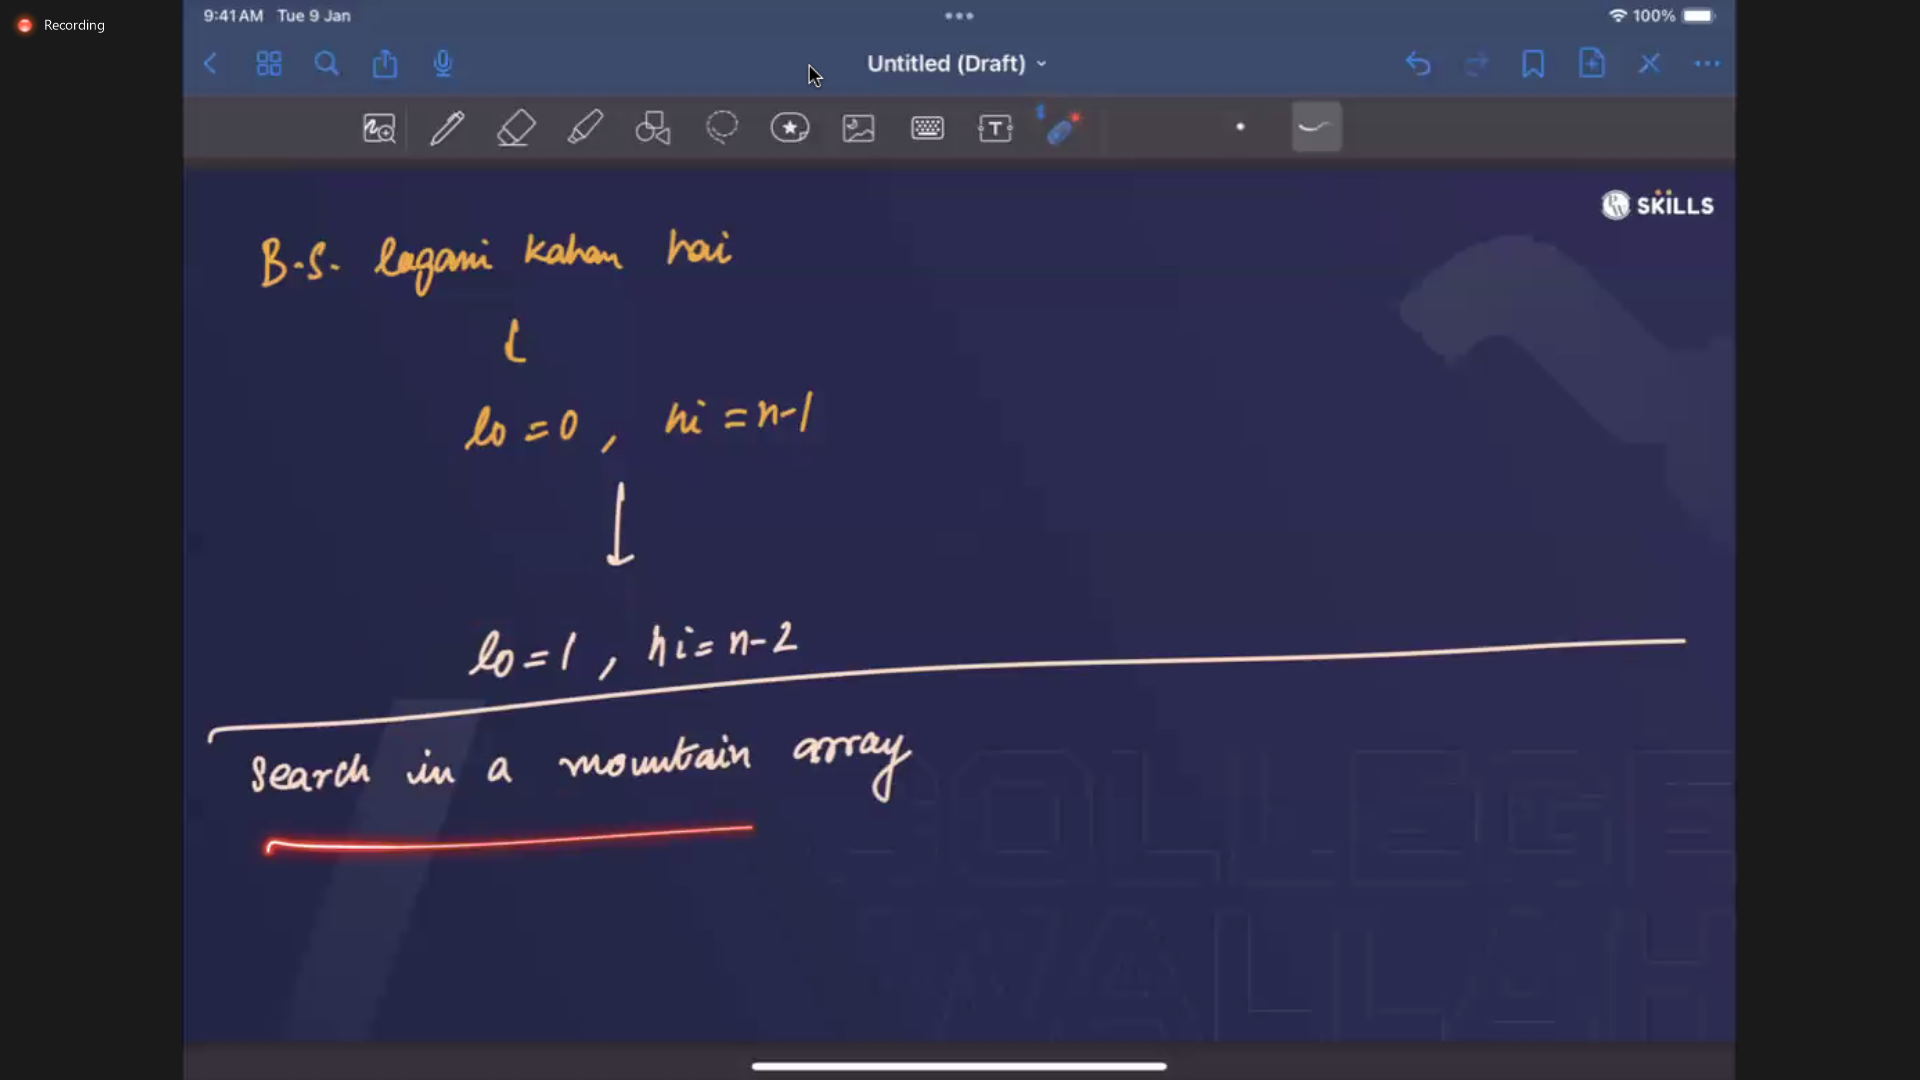 Recording
9:41 AM Tue 9 Jan
100%
Untitled (Draft)
T
PW SKILLS
B.S. lagani kahan hai
lo = 0 , hi = n-1
lo = 1 , hi = n-2
Search in a mountain array
COLLEGE
WALLAH